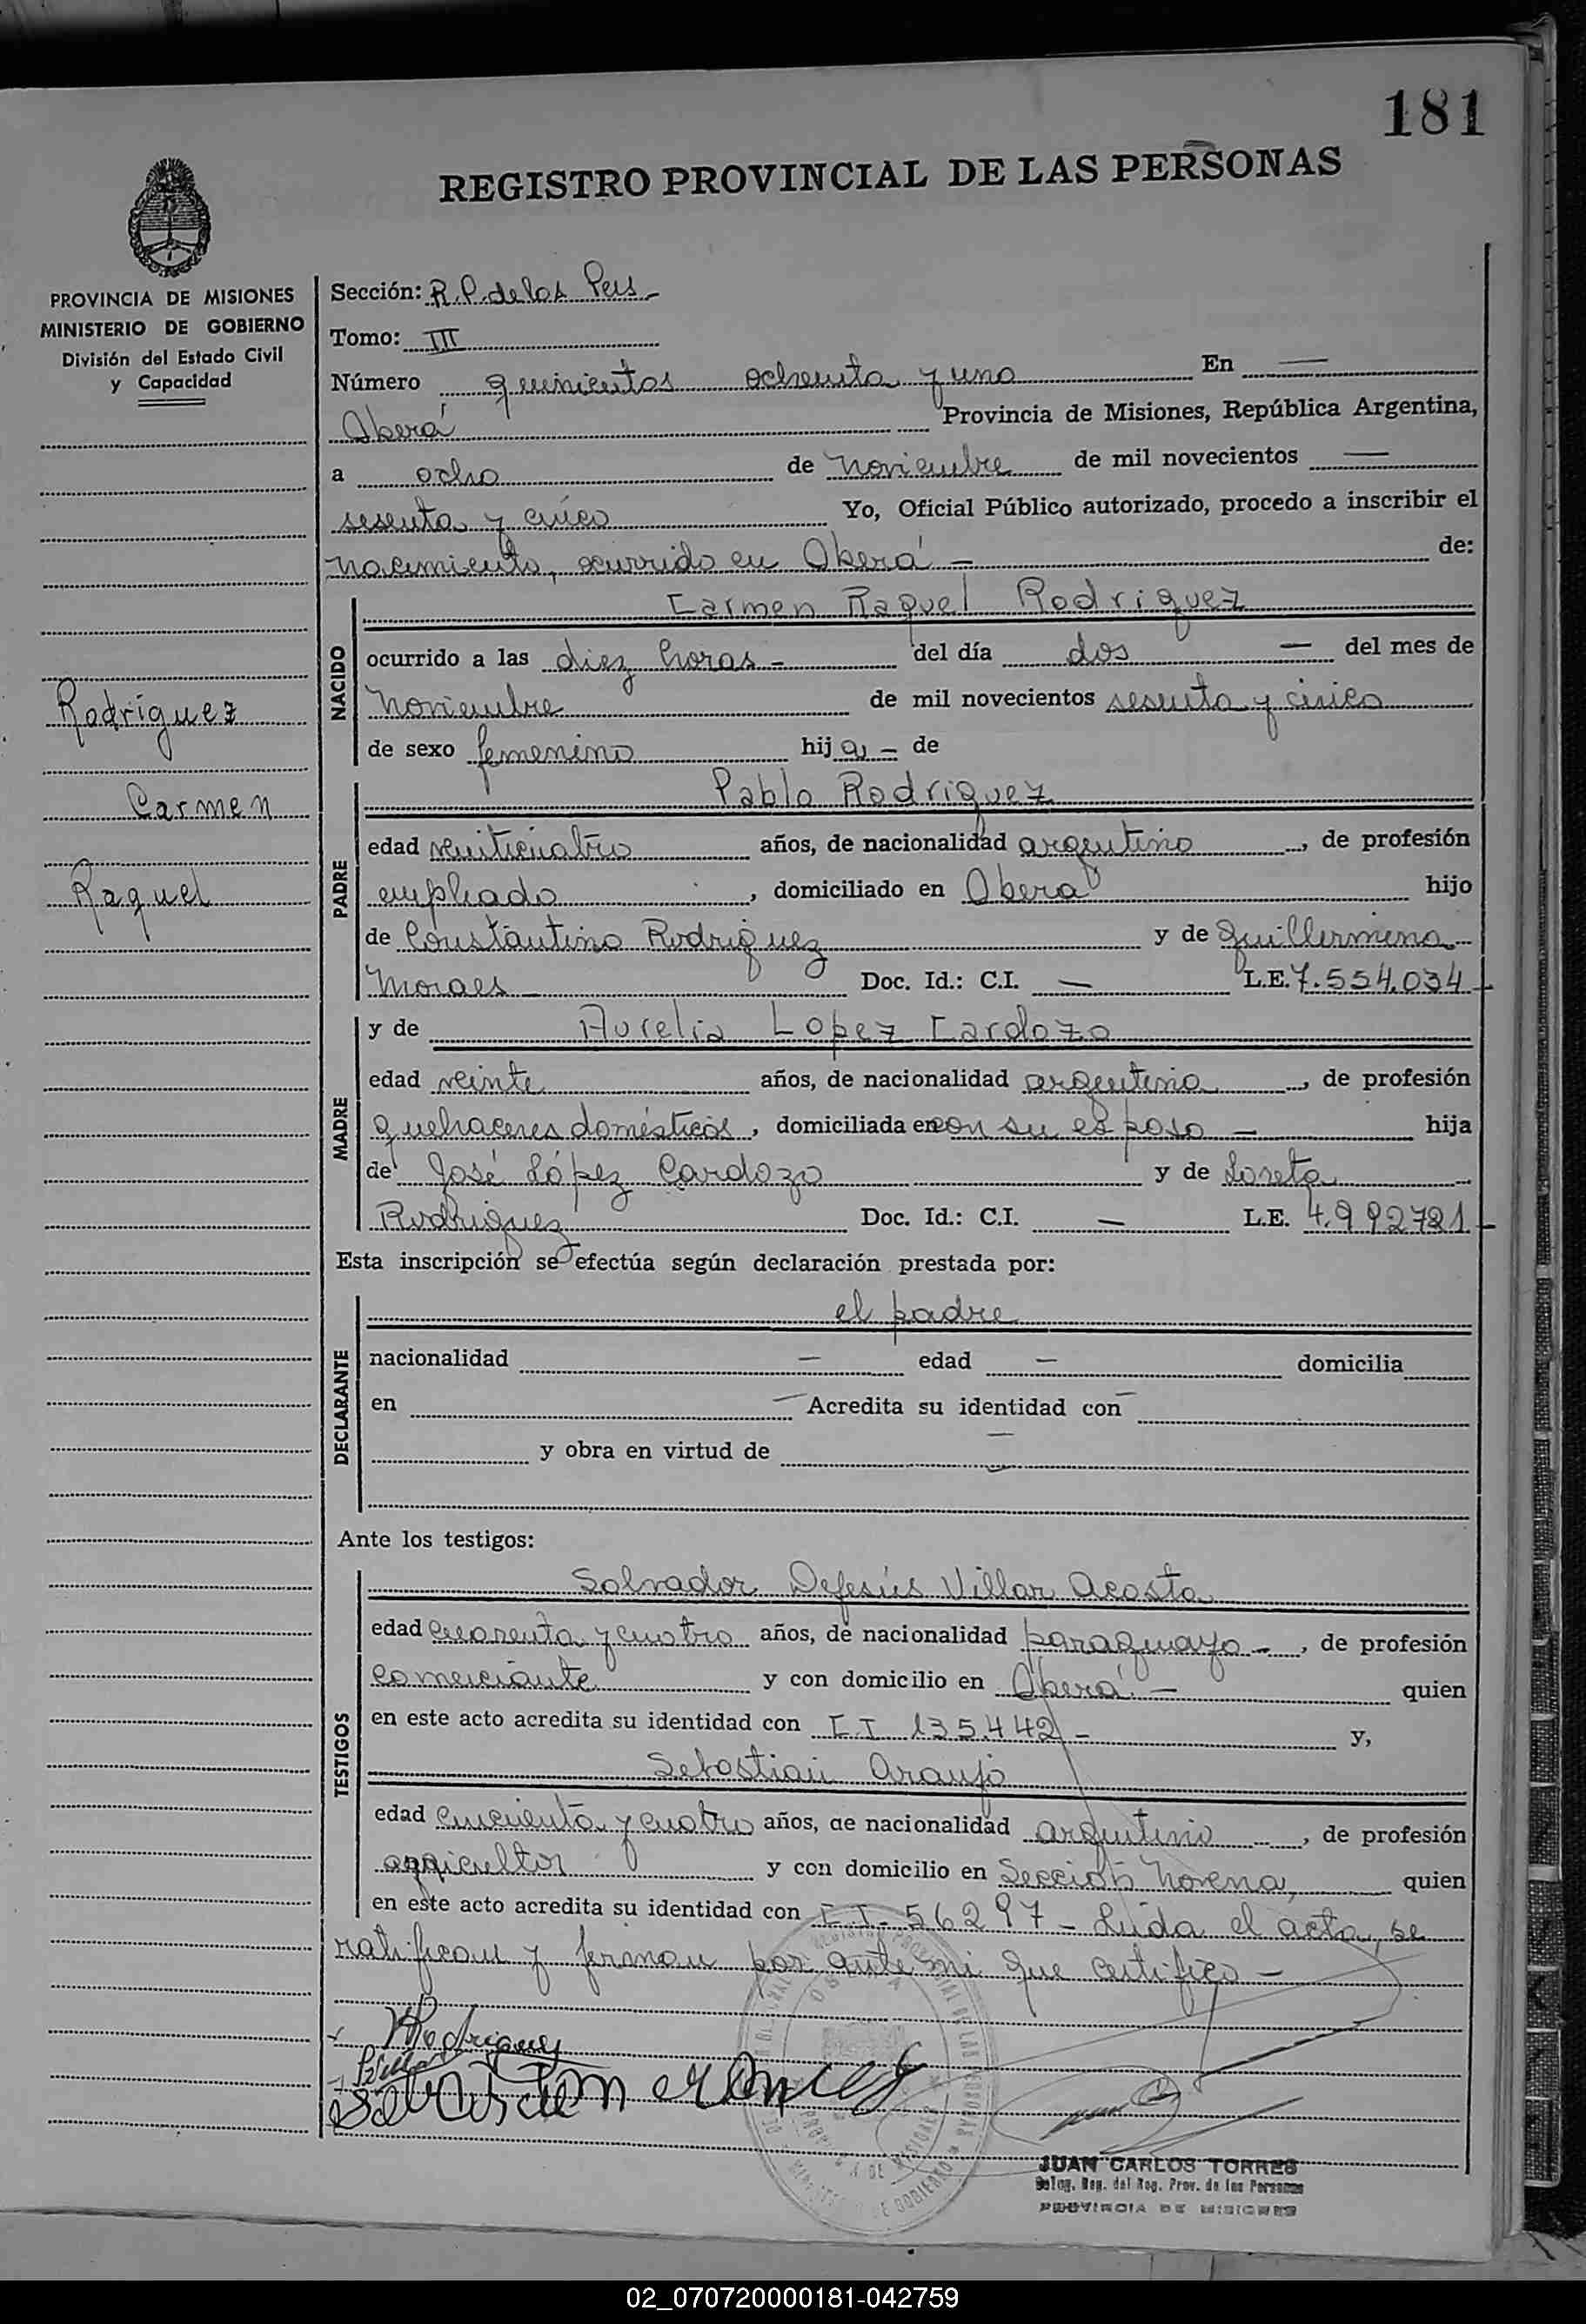 181
REGISTRO PROVINCIAL DE LAS PERSONAS
PROVINCIA DE MISIONES
MINISTERIO DE GOBIERNO
División del Estado Civil
y Capacidad
Rodríguez
Carmen
Raquel
Sección: R.P. de las Pers -
Tomo: III
Número quinientos ochenta y uno En —
Oberá Provincia de Misiones, República Argentina,
a ocho de noviembre de mil novecientos —
sesenta y cinco Yo, Oficial Público autorizado, procedo a inscribir el
nacimiento, ocurrido en Oberá - de:
NACIDO
Carmen Raquel Rodriguez
ocurrido a las diez horas - del día dos — del mes de
noviembre de mil novecientos sesenta y cinco
de sexo femenino hija - de
PADRE
Pablo Rodriguez
edad veinticuatro años, de nacionalidad argentino, de profesión
empleado, domiciliado en Oberá hijo
de Constantino Rodriguez y de Guillermina
Moraes - Doc. Id.: C.I. — L.E. 7.554.034 -
MADRE
y de Aurelia Lopez Cardozo
edad veinte años, de nacionalidad argentina, de profesión
quehaceres domésticos, domiciliada en con su esposo - hija
de José López Cardozo y de Loreta
Rodriguez Doc. Id.: C.I. — L.E. 4.992721 -
Esta inscripción se efectúa según declaración prestada por:
DECLARANTE
el padre
nacionalidad — edad — domicilia
en — Acredita su identidad con —
y obra en virtud de —
Ante los testigos:
TESTIGOS
Salvador Dejesús Villar Acosta
edad cuarenta y cuatro años, de nacionalidad paraguayo -, de profesión
comerciante y con domicilio en Oberá - quien
en este acto acredita su identidad con C.I 135.442 - y,
Sebastian Araujo
edad cincuenta y cuatro años, de nacionalidad argentino, de profesión
agricultor y con domicilio en Sección Novena, quien
en este acto acredita su identidad con C.I. 56297 - Leída el acta, se
ratifican y firman por ante mi que certifico -
Rodriguez
JUAN CARLOS TORRES
Deleg. Reg. del Reg. Prov. de las Personas
PROVINCIA DE MISIONES
02_070720000181-042759